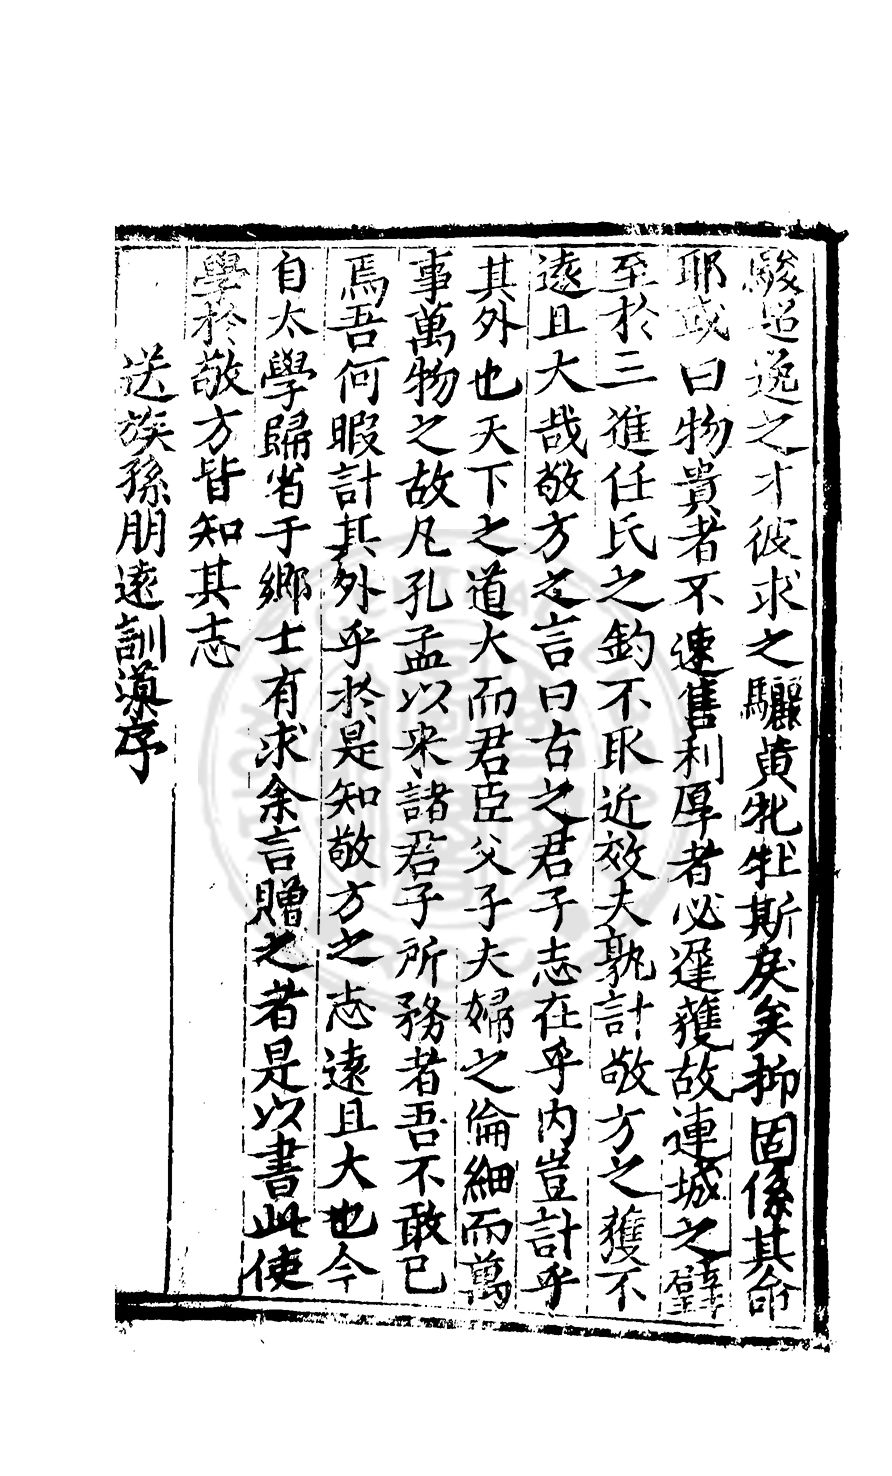 駿超逸之才彼求之驪黄牝牡斯戾矣抑固係其命
耶或曰物貴者不速售利厚者必遲獲故連城之璧
至於三進任氏之釣不取近效夫孰計敬方之獲不
遠且大哉敬方之言曰古之君子志在乎内豈計乎
其外也天下之道大而君臣父子夫婦之倫細而萬
事萬物之故凡孔孟以来諸君子所務者吾不敢已
焉吾何暇計其外乎於是知敬方之志遠且大也今
自太學歸省于鄉士有求余言贈之者是以書此使
學於敬方皆知其志
送族孫朋遠訓導序